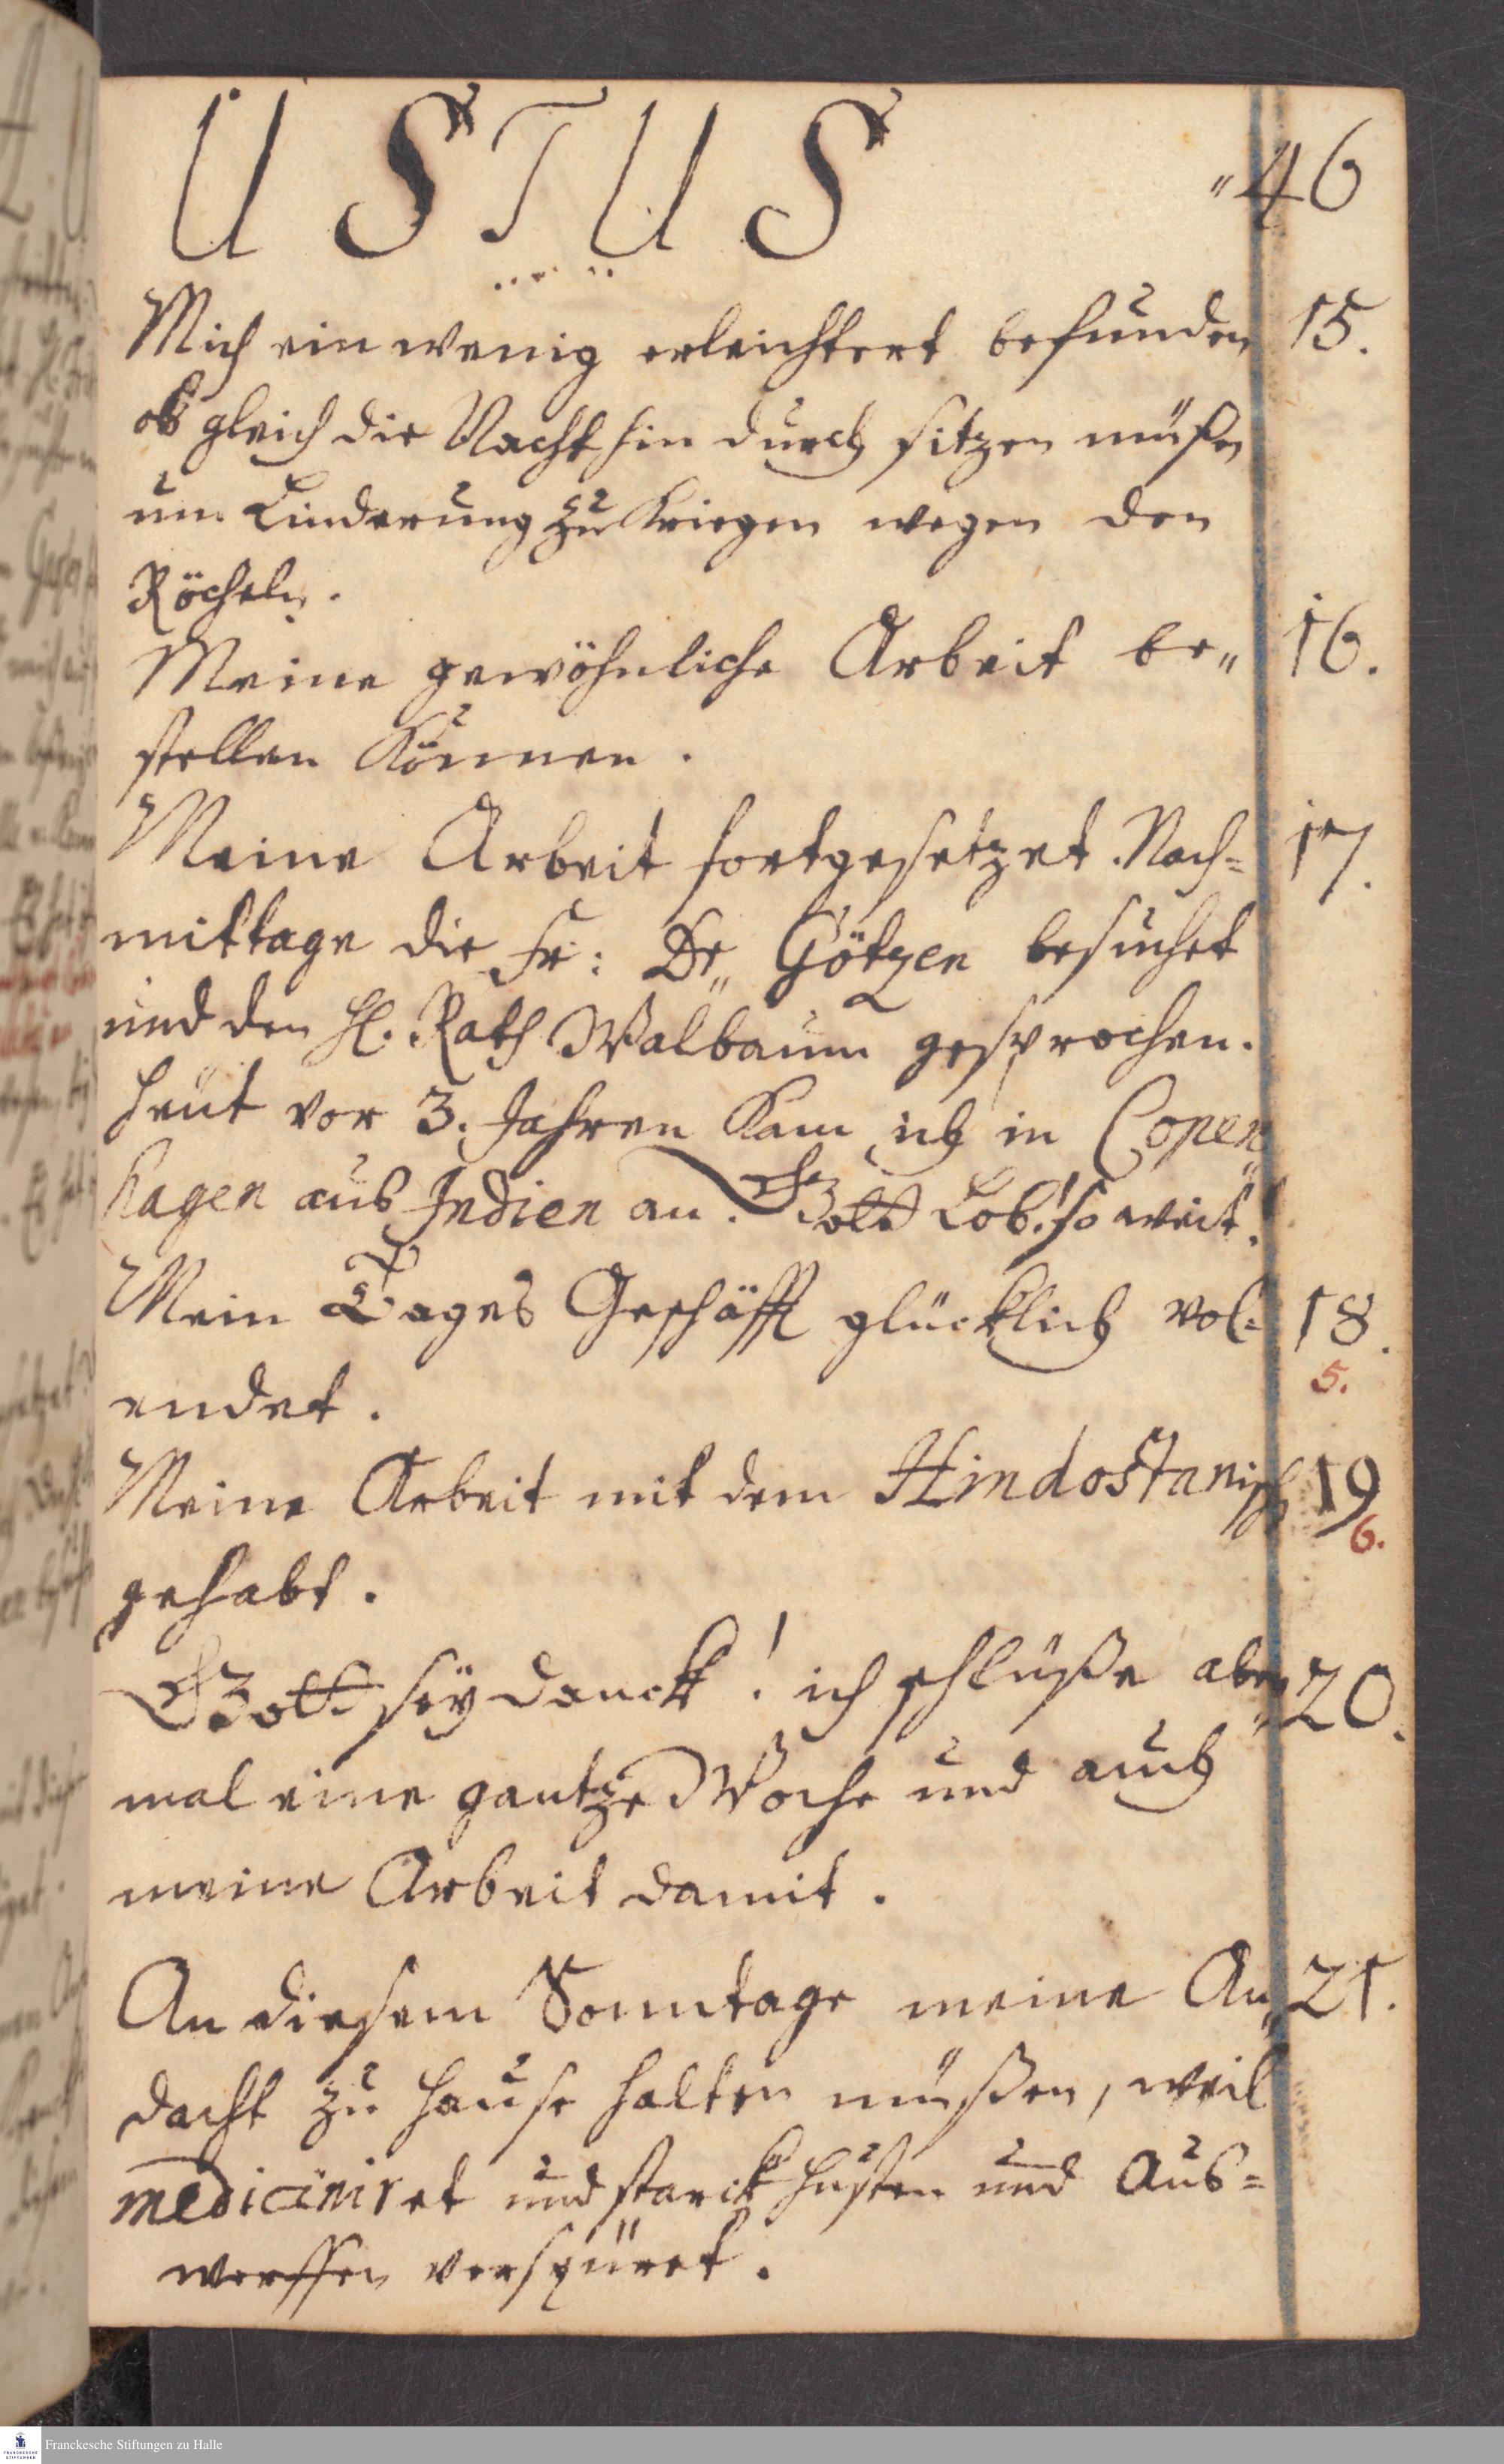 USTUS „46
Mich ein wenig erleichtert befunden 15.
ob gleich die Nacht hin durch sitzen müßen
um Linderung zu kriegen wegen den
Röcheln.
Meine gewöhnliche Arbeit be„ 16.
stellen können.
Meine Arbeit fortgesetzet. Nach= 17.
mittage die Fr: Dr„ Götzen besuchet
und den H. Rath Walbaum gesprochen.
heut vor 3. Jahren kam ich in Copen
hagen aus Indien an. Gott Lob! so weit.
Mein Tages Geschäfft glücklich vol= 18.
5.
endet.
Meine Arbeit mit dem Hindostanisch 19
6.
gehabt.
Gott sey danck! ich schlüße aber„ 20.
mal eine gantze Woche und auch
meine Arbeit damit.
An diesem Sonntage meine An„ 21.
dacht zu Hause halten müßen, weil
mediciniret und starck Husten und Aus=
werffen verspüret.
Franckesche Stiftungen zu Halle